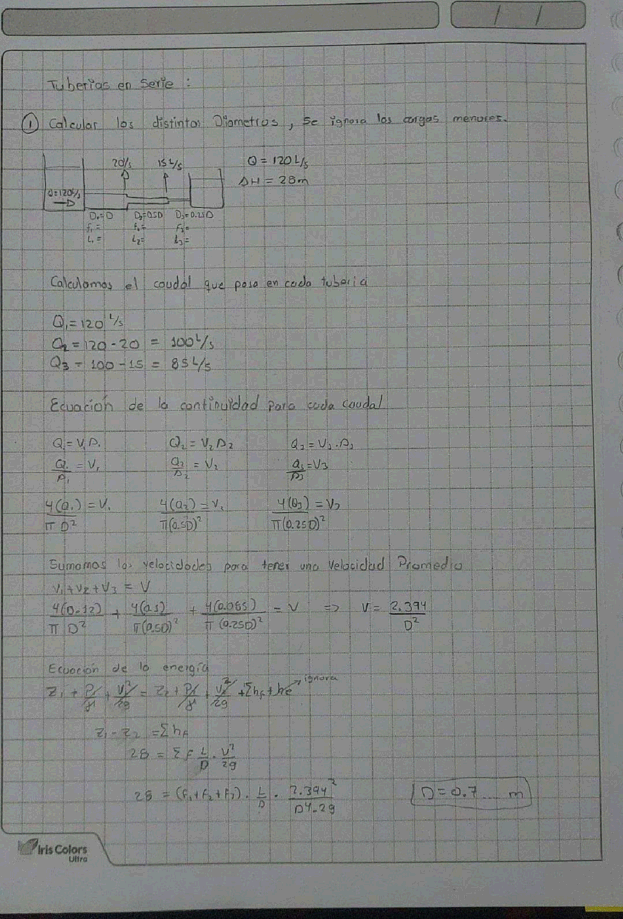 Tuberías en Serie :
① Calcular los distintos Diametros, se ignora las cargas menores.
20/s 15 L/s Q = 120 L/s
Q=120 L/s ΔH = 28m
D₁=D D₂=0.5D D₃=0.25D
f₁= f₂= F₃=
L₁= L₂= L₃=
Calculamos el caudal que pasa en cada tuberia
Q₁ = 120 L/s
Q₂ = 120 - 20 = 100 L/s
Q₃ = 100 - 15 = 85 L/s
Ecuación de la continuidad para cada caudal
Q₁ = V₁A₁ Q₂ = V₂A₂ Q₃ = V₃.A₃
Q₁/A₁ = V₁ Q₂/A₂ = V₂ Q₃/A₃ = V₃
4(Q₁)/π D² = V₁ 4(Q₂)/π(0.5D)² = V₂ 4(Q₃)/π(0.25D)² = V₃
Sumamos las velocidades para tener una velocidad Promedio
V₁ + V₂ + V₃ = V
4(0.12)/π D² + 4(0.1)/π(0.5D)² + 4(0.085)/π(0.25D)² = V => V = 2.394/D²
Ecuación de la energía
Z₁ + P₁/γ + V₁²/2g = Z₂ + P₂/γ + V₂²/2g + Σhf + he → ignora
Z₁ - Z₂ = Σhf
28 = Σ F L/D . V²/2g
28 = (F₁+F₂+F₃) . L/D . 2.394²/D⁴.2g D = 0.7.... m
Iris Colors
Ultra